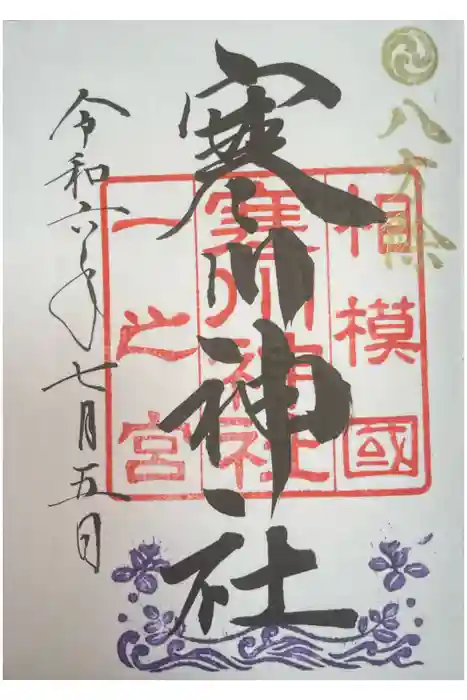 八方除
相模國
寒川神社
一之宮
寒川神社
令和六年七月五日